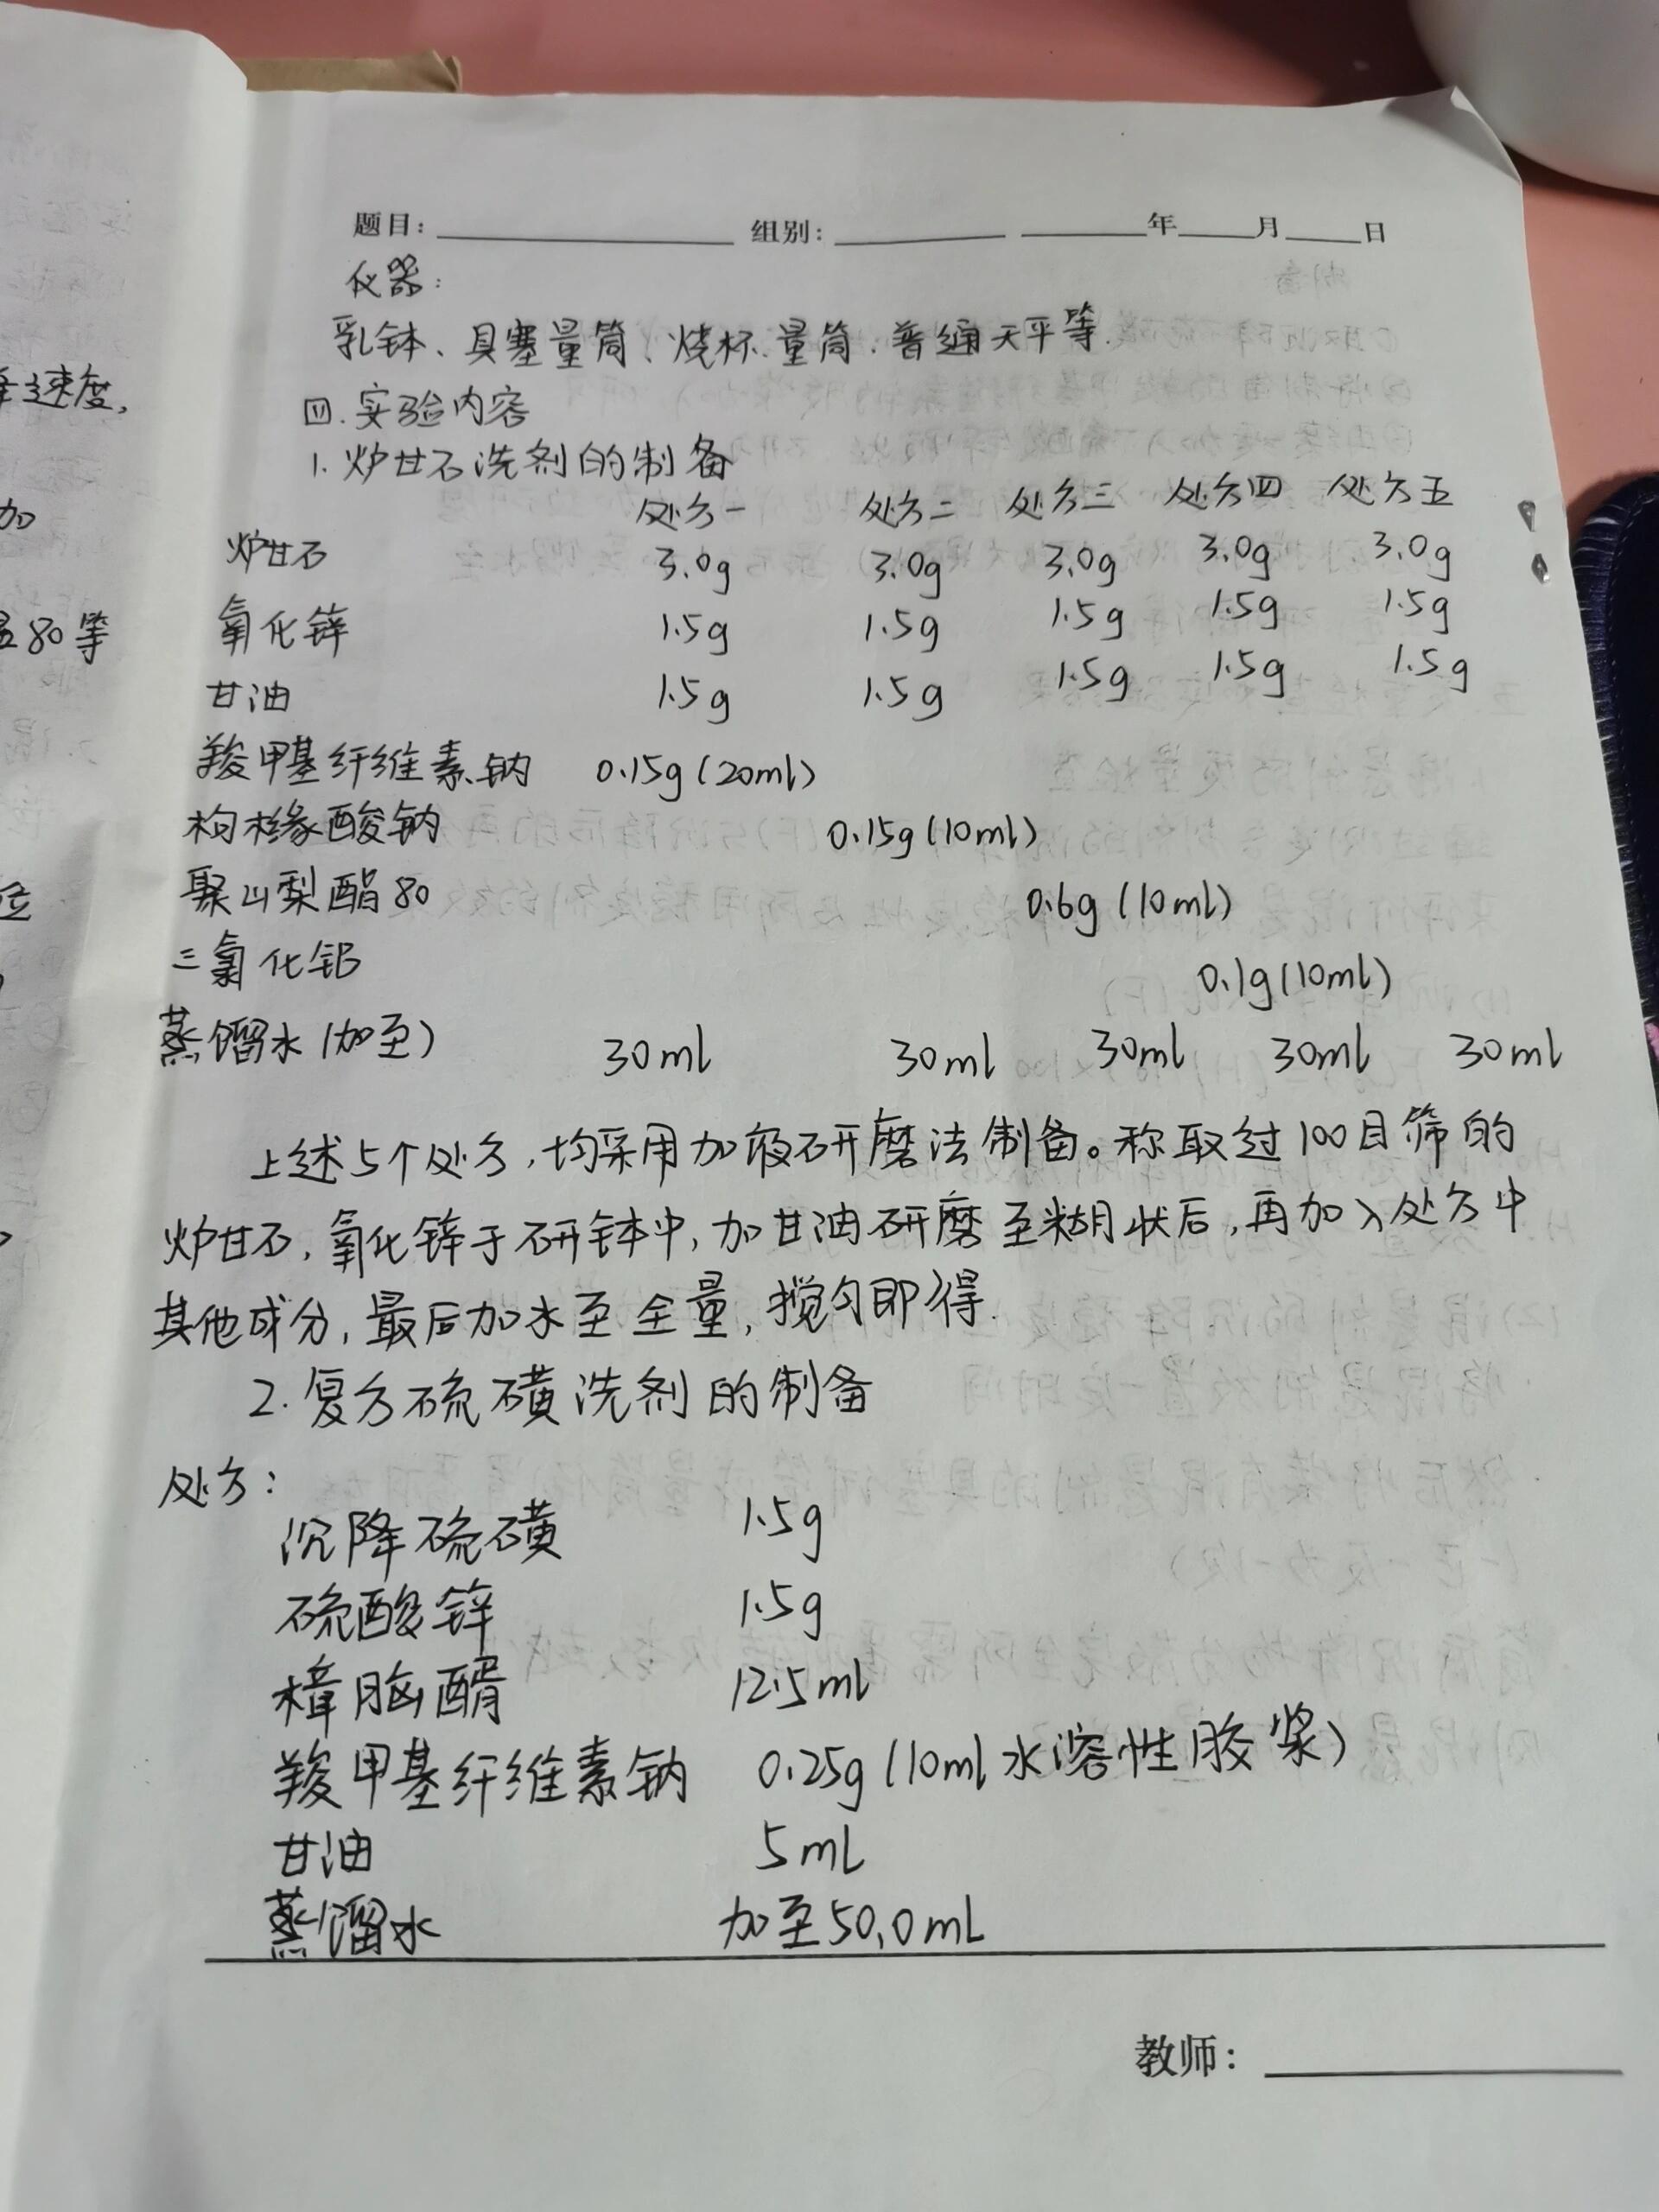 题目: 组别: 年 月 日
仪器:
乳钵、具塞量筒、烧杯、量筒、普通天平等.
四.实验内容
1.炉甘石洗剂的制备
处方一 处方二 处方三 处方四 处方五
炉甘石 3.0g 3.0g 3.0g 3.0g 3.0g
氧化锌 1.5g 1.5g 1.5g 1.5g 1.5g
甘油 1.5g 1.5g 1.5g 1.5g 1.5g
羧甲基纤维素钠 0.15g(20ml)
枸橼酸钠 0.15g(10ml)
聚山梨酯80 0.6g(10ml)
三氯化铝 0.1g(10ml)
蒸馏水(加至) 30ml 30ml 30ml 30ml 30ml
上述5个处方,均采用加液研磨法制备。称取过100目筛的
炉甘石,氧化锌于研钵中,加甘油研磨至糊状后,再加入处方中
其他成分,最后加水至全量,搅匀即得.
2.复方硫磺洗剂的制备
处方:
沉降硫磺 1.5g
硫酸锌 1.5g
樟脑醑 12.5ml
羧甲基纤维素钠 0.25g(10ml水溶性胶浆)
甘油 5ml
蒸馏水 加至50.0ml
教师:
速度,
加
80等